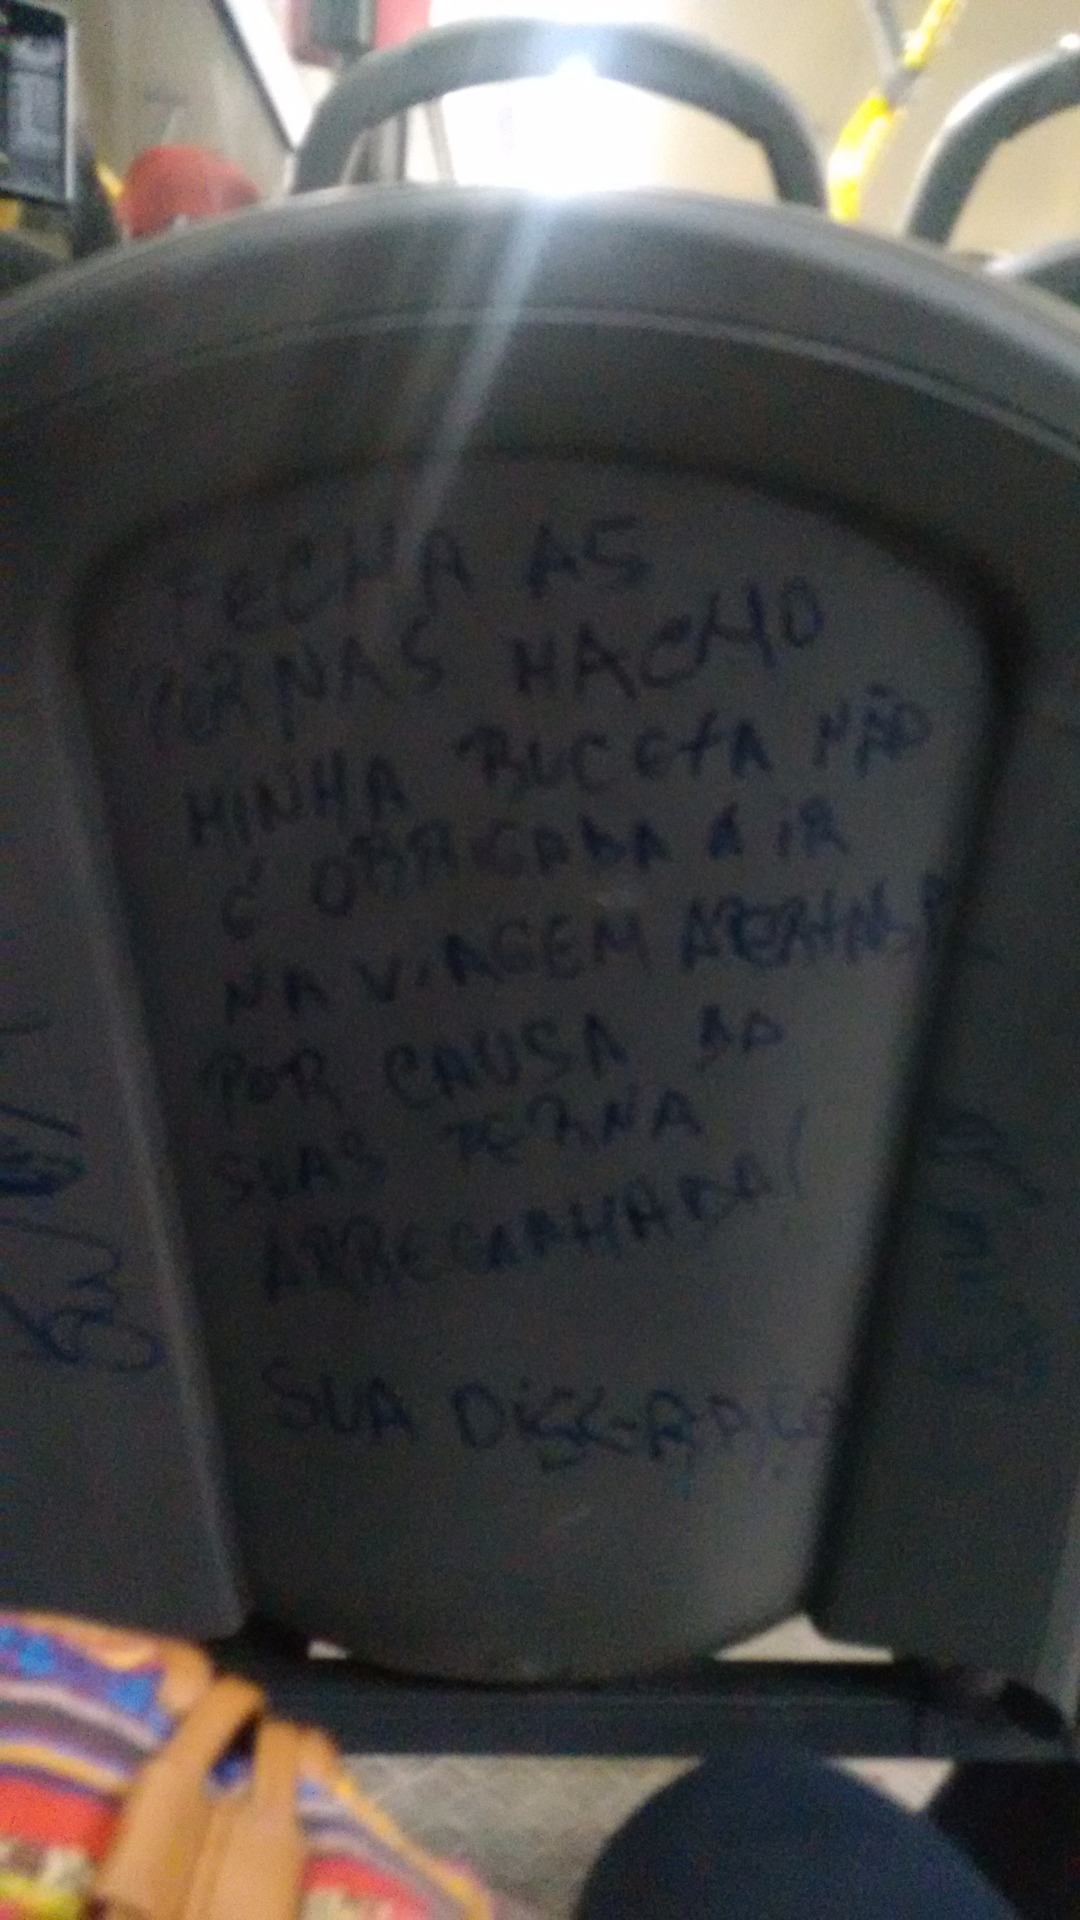 FECHA AS
PERNAS MACHO
MINHA BUCETA NÃO
É OBRIGADA A IR
NA VIAGEM APERTADA
POR CAUSA DA
SUAS PERNA
ARREGANHADA!
SUA DISGRAÇA